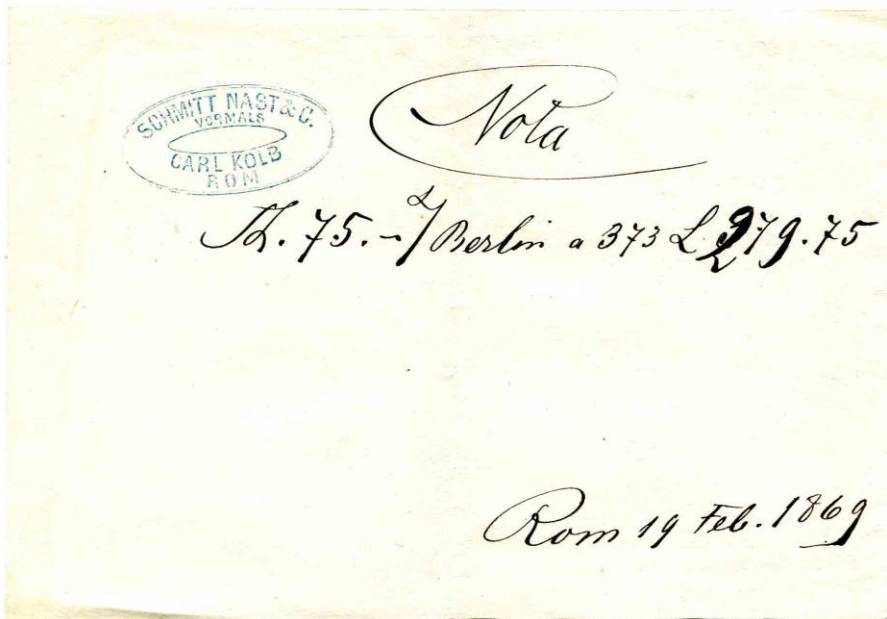 SCHMITT NAST & C.
VORMALS
CARL KOLB
ROM
Nota
75.- Berlin a 373 L 279.75
Rom 19 Feb. 1869